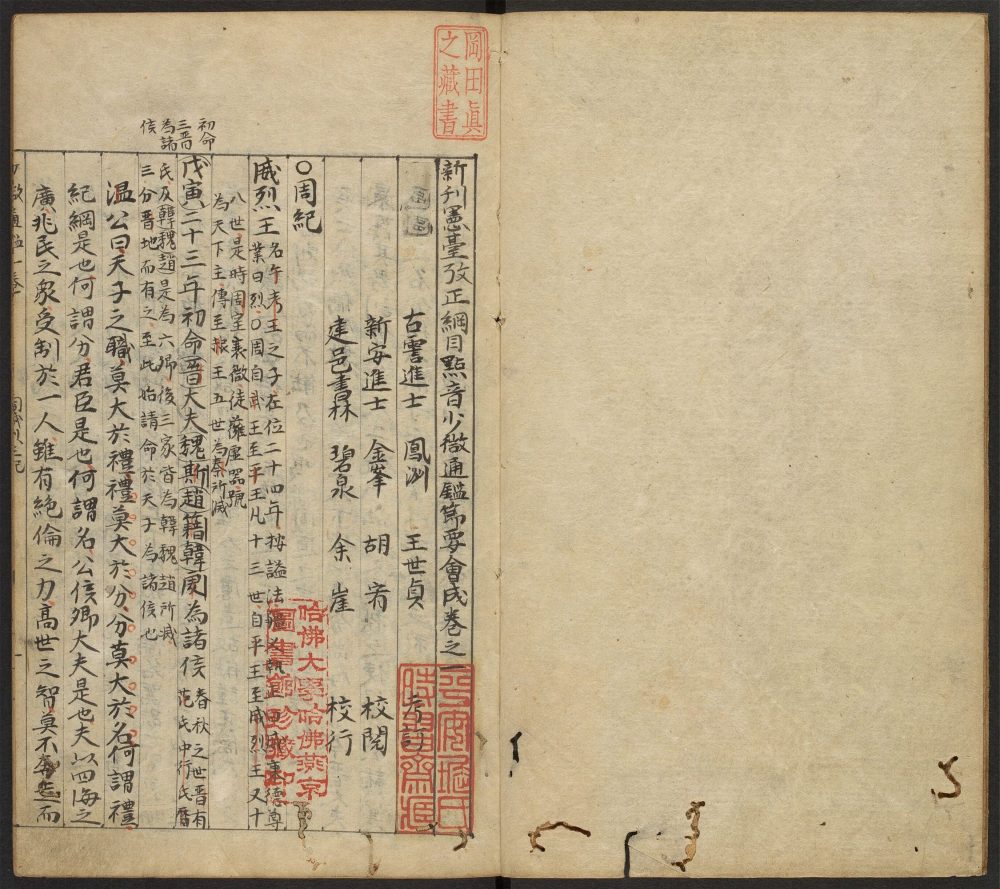 岡田眞
之藏書
新刊憲臺攷正綱目點音少微通鑑節要會成卷之一
古雩進士 鳳洲 王世貞 考訂
新安進士 金峯 胡宥 校閱
建邑書林 碧泉 余崖 校行
〇周紀
威烈王
名午考王之子在位二十四年按謚法
業曰烈〇周自武王至平王凡十三世自平王至威烈王又十
八世是時周室衰微徒擁虛器號
為天下主傳至赧王五世為秦所滅
初命
三晋
為諸
侯
戊寅二十三年初命晋大夫魏斯趙籍韓虔為諸侯
春秋之世晋有
范氏中行氏
氏及韓魏趙是為六卿後三家皆為韓魏趙所滅
三分晋地而有之至此始請命於天子為諸侯也
温公曰天子之職莫大於禮禮莫大於分分莫大於名何謂禮
紀綱是也何謂分君臣是也何謂名公侯卿大夫是也夫以四海之
廣兆民之衆受制於一人雖有絶倫之力高世之智莫不而
哈佛大學哈佛燕京
圖書館珍藏印